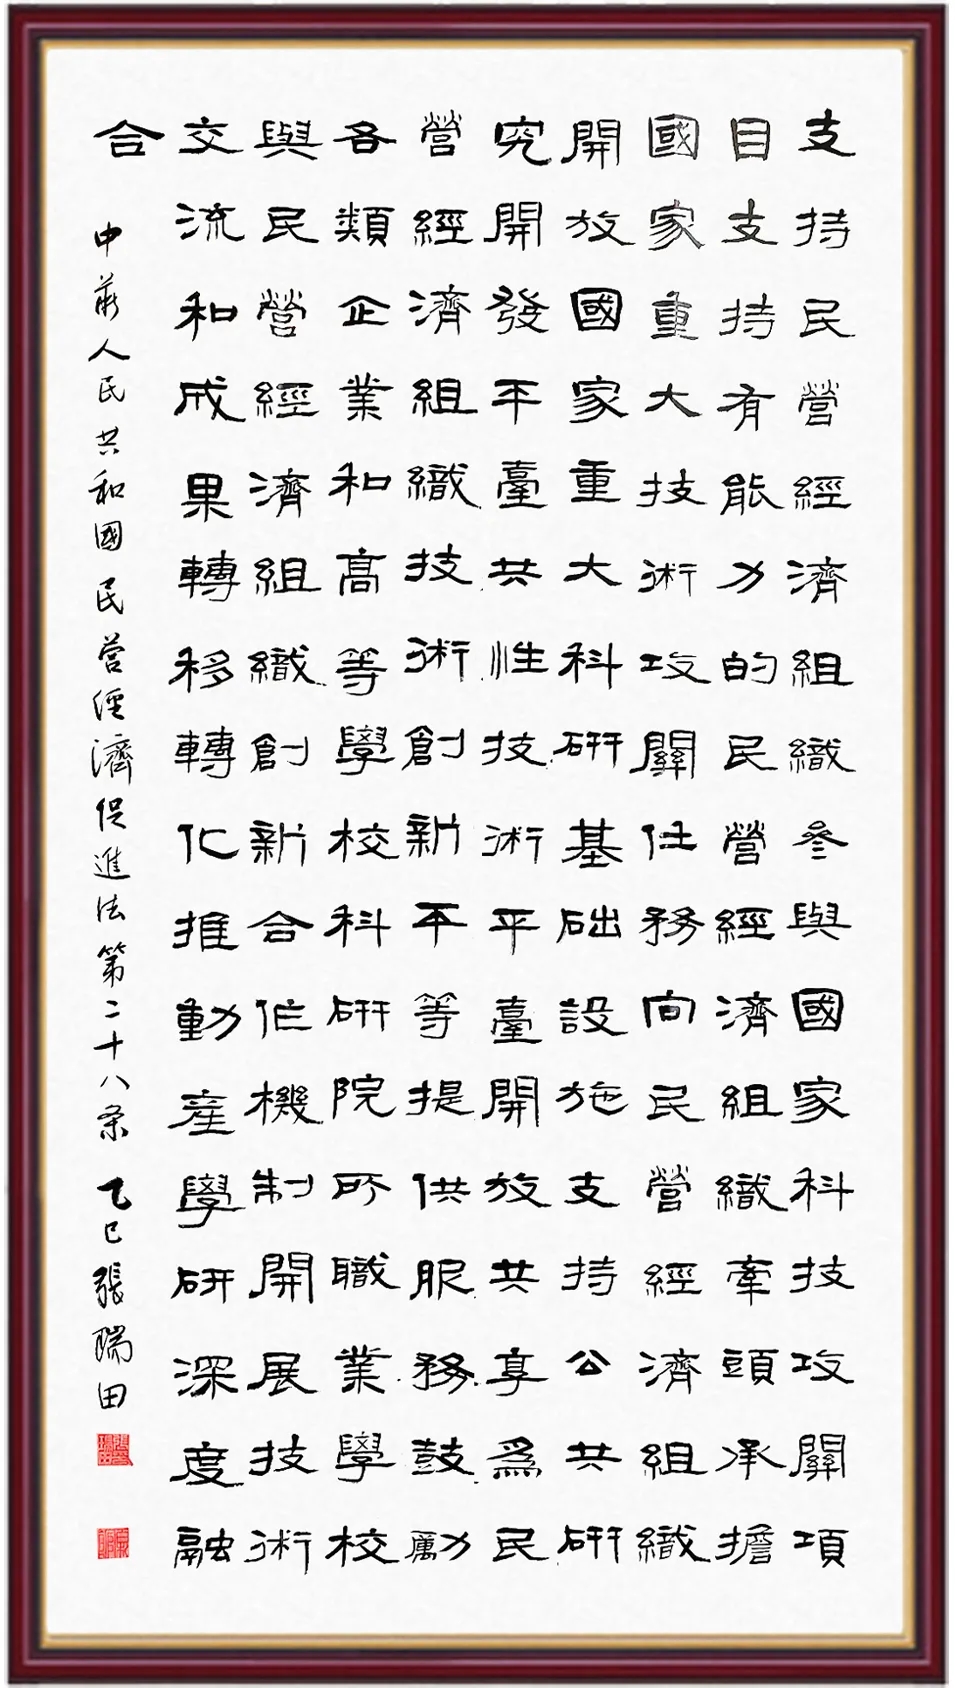 支持民營經濟組織參與國家科技攻關項
目支持有能力的民營經濟組織牽頭承擔
國家重大技術攻關任務向民營經濟組織
開放國家重大科研基础設施支持公共研
究開發平臺共性技術平臺開放共享爲民
營經濟組織技術創新平等提供服務鼓勵
各類企業和高等學校科研院所職業學校
與民營經濟組織創新合作機制開展技術
交流和成果轉移轉化推動產學研深度融
合
中華人民共和國民營經濟促進法第二十八条 乙巳張瑞田